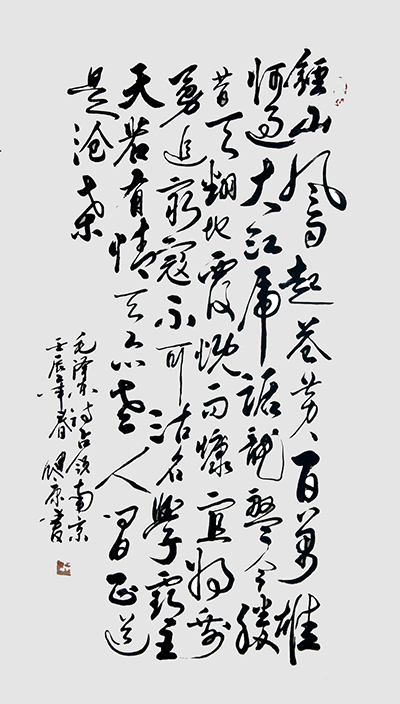 鍾山風雨起苍黄百萬雄
师過大江虎踞龍盤今勝
昔天翻地覆慨而慷宜将剩
勇追窮寇不可沽名學霸王
天若有情天亦老人间正道
是沧桑
毛泽东诗占领南京
壬辰年春